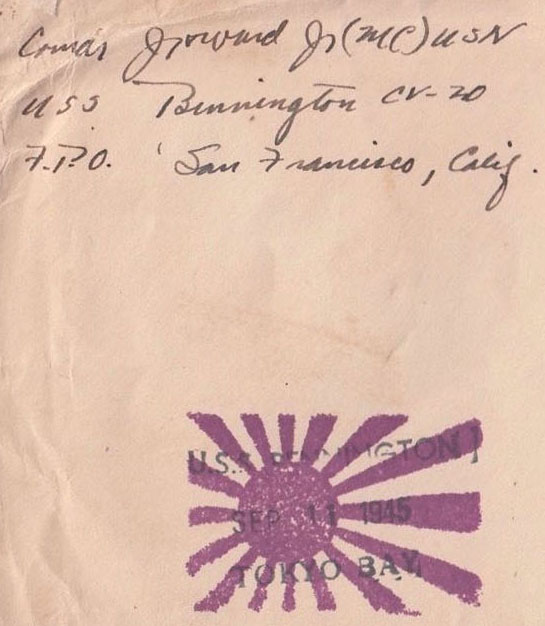 Jr (MC) USN
USS Bennington CV-20
F.P.O. San Francisco, Calif.
U.S.S. BENNINGTON
SEP 11 1945
TOKYO BAY